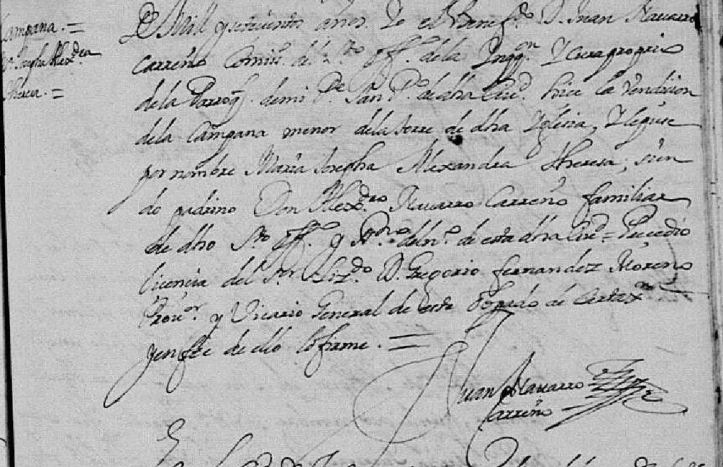 Campana. =
Mª Josepha Alexdra
Theresa. =
Mil y setecientos años. Yo el Benefdo D. Juan Navarro
Carreño Comisº del Sto Offº de la Inqqon Y Cura proprio
de la Parroql de mi Pe San Po de dha Ciud hice la vendision
de la Campana menor de la torre de dha Yglesia, Y le puse
por nombre Maria Josepha Alexandra Theresa, sien
do padrino Don Alexdro Navarro Carreño familiar
de dho Sto Offº y de esta dha Ciud = Precedio
licencia del Sor Lizdo D. Gregorio Fernandez Moreno
Provor y Vicario General de este Obispado de Cartaxna
y en fee de ello lo firme. =
Juan Navarro
Carreño